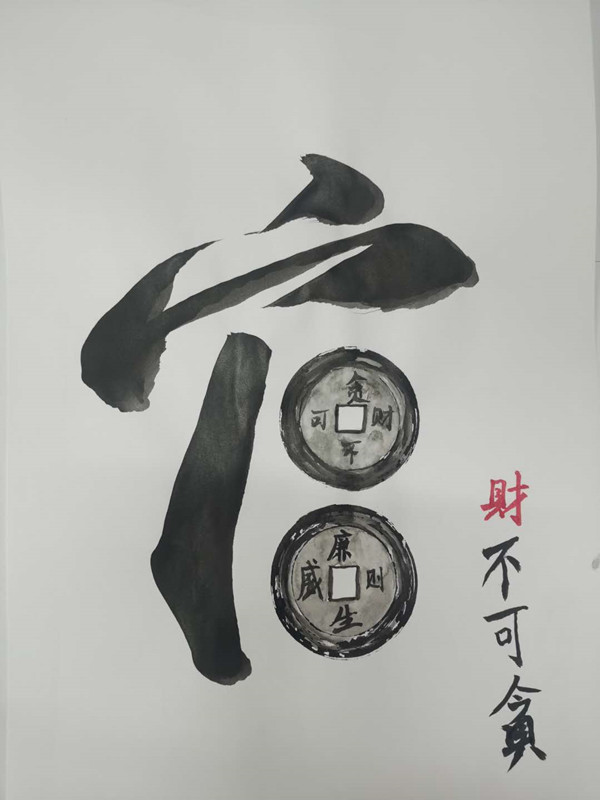 官
财不可贪
廉则生威
財不可貪